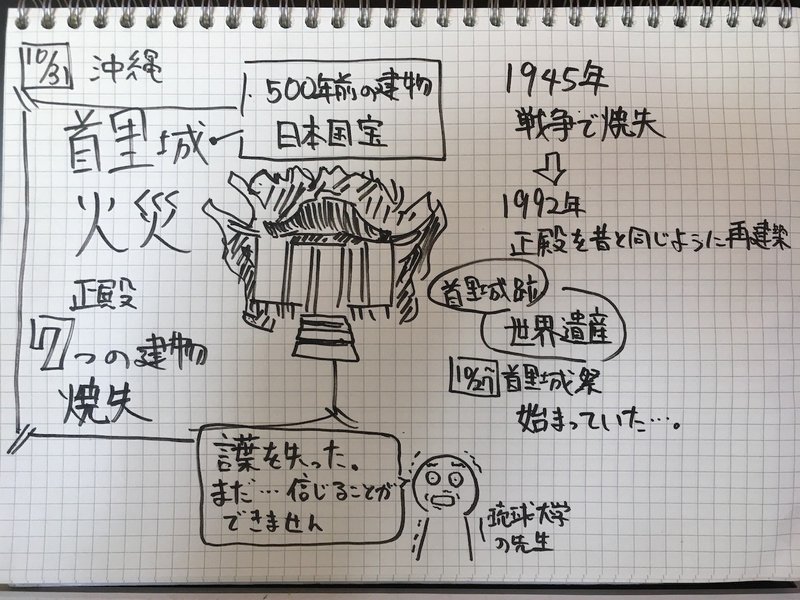 10/31 沖縄
首里城
火災
正殿
7つの建物
焼失
500年前の建物
日本国宝
1945年
戦争で焼失
1992年
正殿を昔と同じように再建築
首里城跡
世界遺産
10/27〜 首里城祭
始まっていた…。
言葉を失った。
まだ…信じることが
できません
琉球大学
の先生